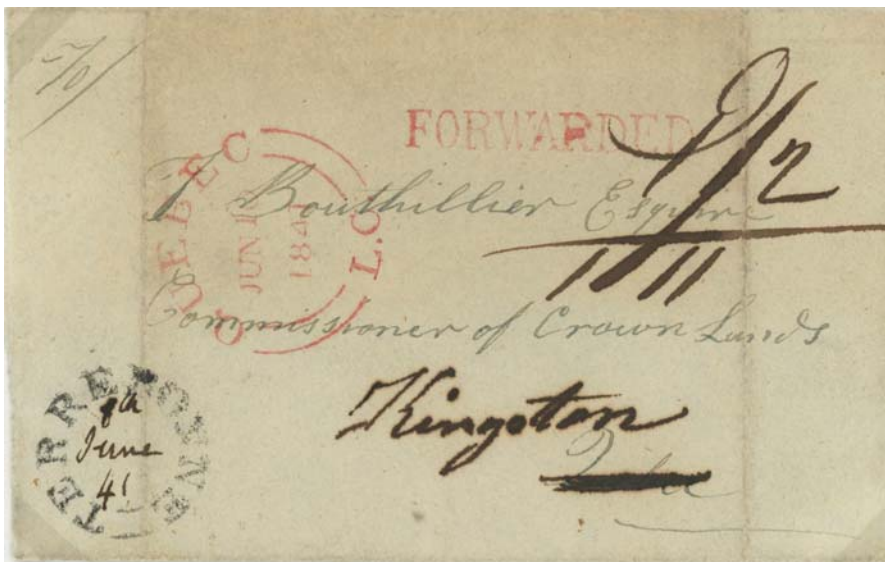 FORWARDED
QUEBEC L.C
JUN 1841
T Bouthillier Esquire
1/11
Commissioner of Crown Lands
Kingston
TERREBONNE
8th
June
41